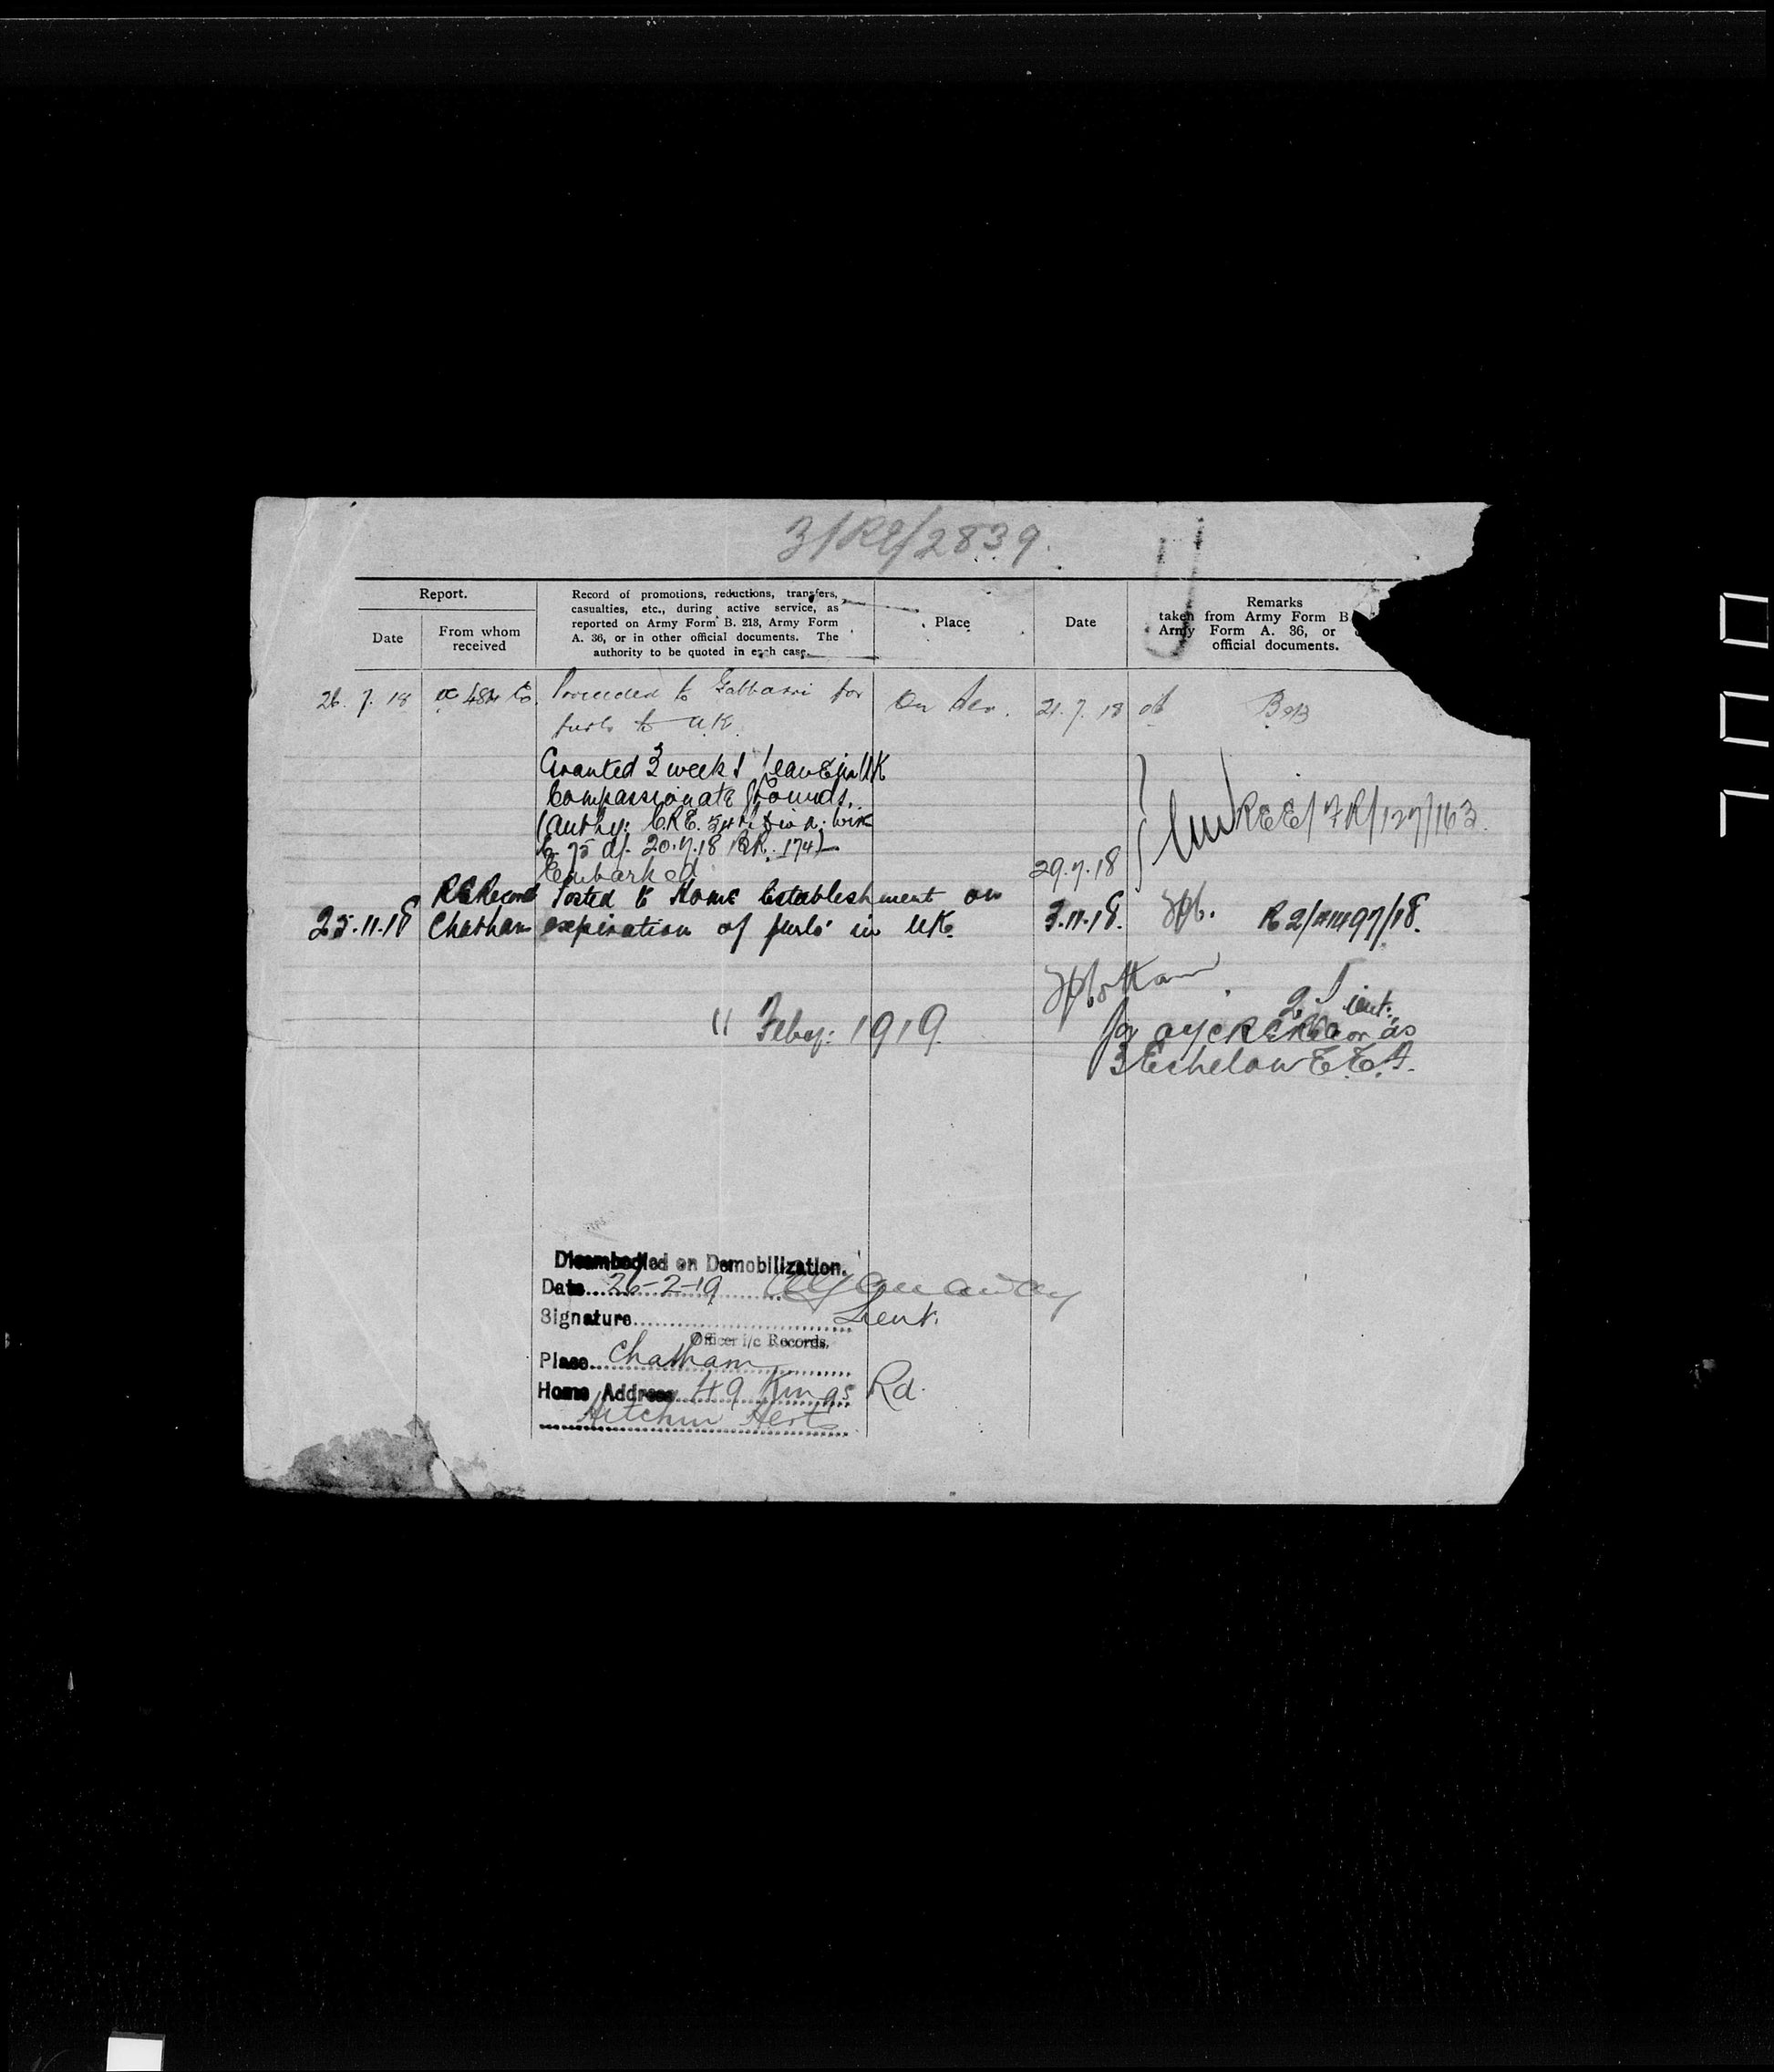 3/RE/2839.
Report.
Date
From whom
received
Record of promotions, reductions, transfers,
casualties, etc., during active service, as
reported on Army Form B. 213, Army Form
A. 36, or in other official documents. The
authority to be quoted in each case.
Place
Date
Remarks
taken from Army Form B
Army Form A. 36, or
official documents.
26.7.18 OC 484 Co. Proceeded to for On Ser. 21.7.18
furlo to U.K.
Granted 3 weeks leave in UK
Compassionate Grounds.
(Authy: CRE. 54th Div. wire
75 20.7.18
Embarked 29.7.18
RE Records Posted to Home Establishment on
25.11.18 Chatham expiration of furlo in UK. 3.11.18.
11 Feby: 1919.
2 Lieut.
for
3 Echelon E.E.F.
Disembodied on Demobilization.
Date 26-2-19
Signature Lieut.
Officer i/c Records.
Place Chatham
Home Address 49 Kings Rd.
Hitchin Herts